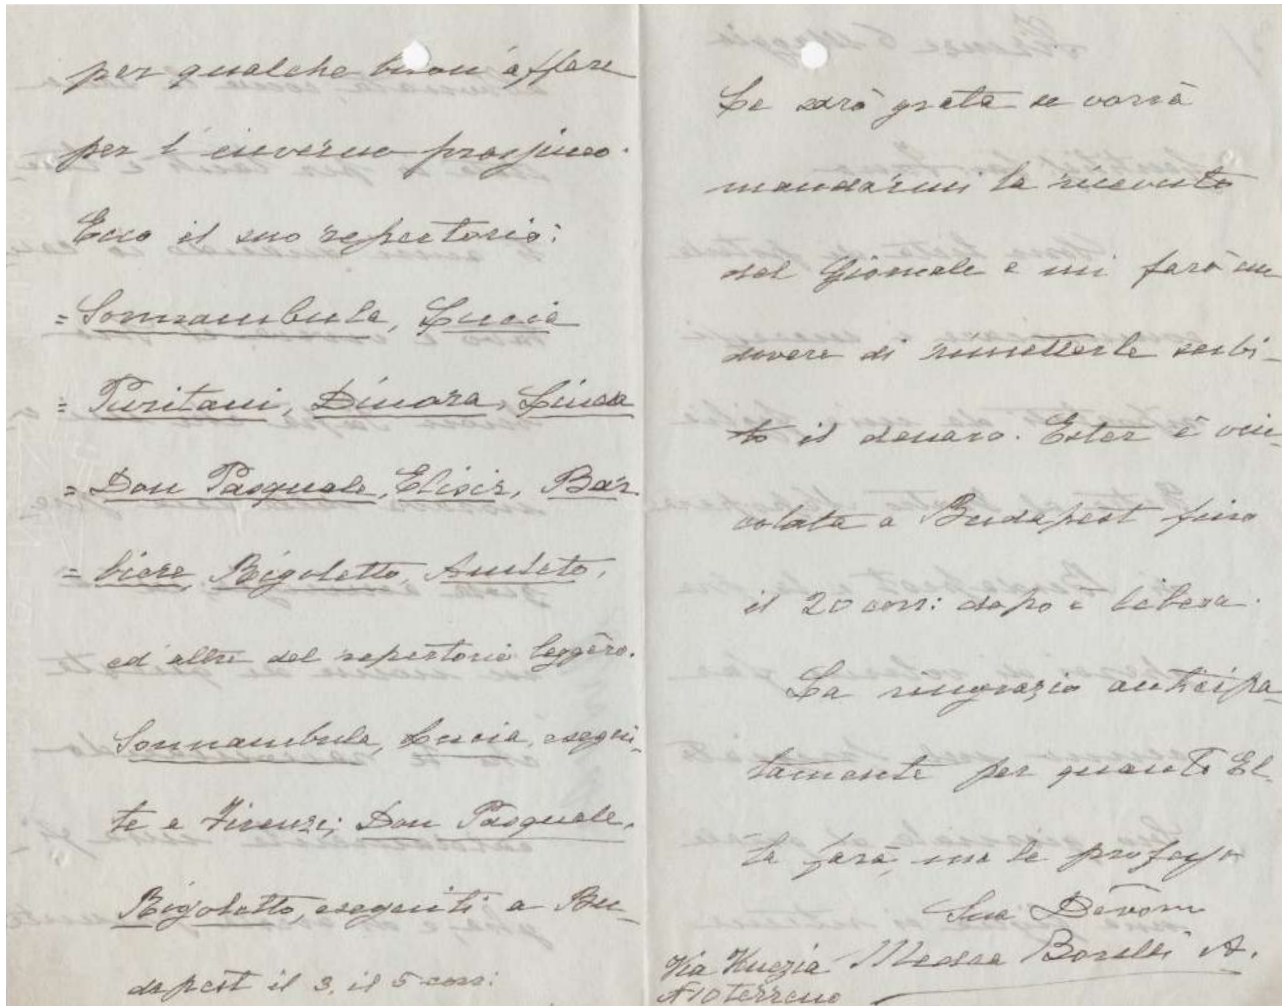 per qualche buon affare
per l'inverno prossimo.
Ecco il suo repertorio:
= Sonnambula, Lucia
= Puritani, Dinora, Linda
= Don Pasquale, Elisir, Bar
= biere, Rigoletto, Amleto,
ed altre del repertorio leggèro.
Sonnambula, Lucia, esegui-
te a Firenze; Don Pasquale,
Rigoletto, eseguiti a Bu-
dapest il 3, il 5 corr:
Le sarò grata se vorrà
mandarmi la ricevuta
del Giornale e mi farò un
dovere di rimetterle subi-
to il denaro. Ester è vin-
colata a Budapest fino
il 20 corr: dopo è libera.
La ringrazio anticipa-
tamente per quanto El-
la farà, me le professo
Sua Devoma
Borelli A.
Via
terreno